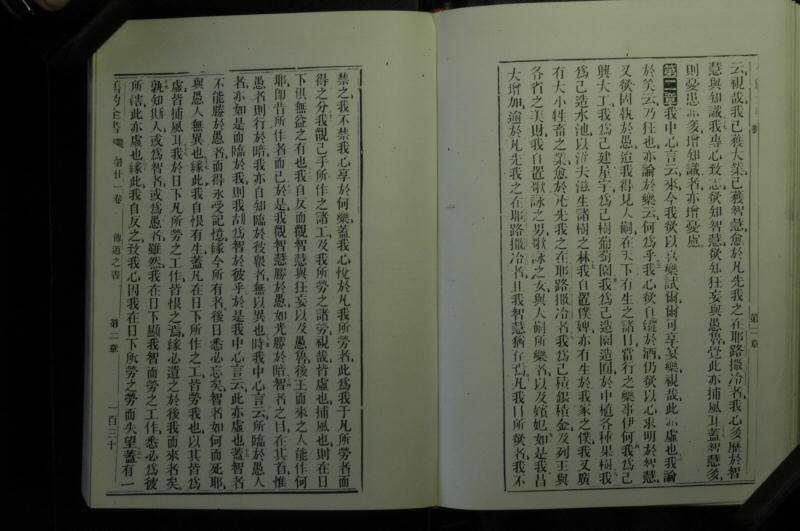 云視哉我已獲大榮已獲智慧愈於凡先我之在耶路撒冷者我心多歷於智
慧與知識我專心致志欲知智慧欲知狂妄與愚魯覺此亦捕風耳蓋智慧多
則憂患亦多增知識者亦增憂慮
第二章我中心言云來今我欲以喜樂試爾爾可享宴樂視哉此亦虛也我論
於笑云乃狂也亦論於樂云何為乎我心欲自縫於酒仍欲以心求明於智慧
又欲固執於愚迨我得見人嗣在天下有生之諸日當行之樂事伊何我為己
興大工我為己建屋宇為己樹葡萄園我為己造園造囿於中植各種果樹我
為己造水池以灌夫滋生諸樹之林我自置僕婢亦有生於我家之僕我又廣
有大小牲畜之業愈於凡先我之在耶路撒冷者我為己積銀積金及列王與
各省之美財我自置歌詠之男歌詠之女與人嗣所樂者以及嬪妃如是我昌
大增加逾於凡先我之在耶路撒冷者且我智慧猶存焉凡我目所欲者我不
第二章
禁之我不禁我心享於何樂蓋我心悅於凡我所勞者此為我于凡所勞者而
得之分我觀己手所作之諸工及我所勞之諸勞視哉皆虛也捕風也則在日
下俱無益之有也我自反而觀智慧與狂妄以及愚魯後王而來之人能作何
耶即昔所作者而已於是我觀智慧勝於愚如光勝於暗智者之目在其首惟
愚者則行於暗我亦自知臨於彼衆者無以異也時我中心言云所臨於愚人
者亦如是而臨於我則我胡為智於彼乎於是我中心言云此亦虛也蓋智者
不能勝於愚者而得永受記憶緣今所有者後日悉必忘矣智者如何而死耶
與愚人無異也緣此我自恨有生蓋凡在日下所作之工皆勞我也以其皆為
虛皆捕風耳我於日下凡所勞之工作皆恨之焉緣必遺之於後我而來者矣
孰知斯人或為智者或為愚者雖然我在日下顯我智而勞之工作悉必為彼
所轄此亦虛也緣此我自反之致我心因我在日下所勞之勞而失望蓋有一
舊約全書 第廿一卷 傳道之書 第二章 一百三十